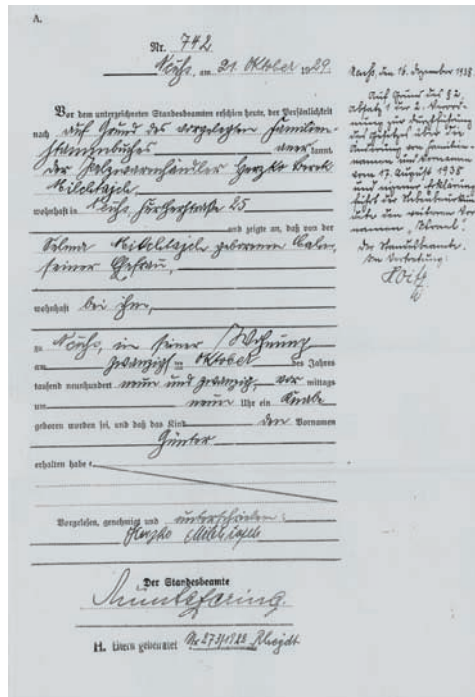 A.
Nr. 742
Neuß, am 21. Oktober 1929.
Vor dem unterzeichneten Standesbeamten erschien heute, der Persönlichkeit
nach auf Grund des vorgelegten Familien-
stammbuches anerkannt,
der Pelzwarenhändler Herzko Berek
wohnhaft in Neuß, 25
und zeigte an, daß von der
Selma geborenen
seiner Ehefrau,
wohnhaft bei ihm,
zu Neuß, in seiner Wohnung
am zwanzigsten Oktober des Jahres
tausend neunhundert neun und zwanzig, vor mittags
um neun Uhr ein Knabe
geboren worden sei, und daß das Kind den Vornamen
Günter
erhalten habe
Vorgelesen, genehmigt und unterschrieben:
Herzko
Der Standesbeamte
H. Listen gefeuchtet Nr 273/1922 Rheydt
Neuß, den 16. Dezember 1938
Auf Grund des § 2,
Absatz 1 der 2. Verord-
nung zur Durchführung
des Gesetzes über die
Änderung von Familien-
namen und Vornamen
vom 17. August 1938
und eigener Erklärung
führt der Nebenbeurkun-
dete den weiteren Vor-
namen „Israel".
Der Standesbeamte:
In Vertretung: